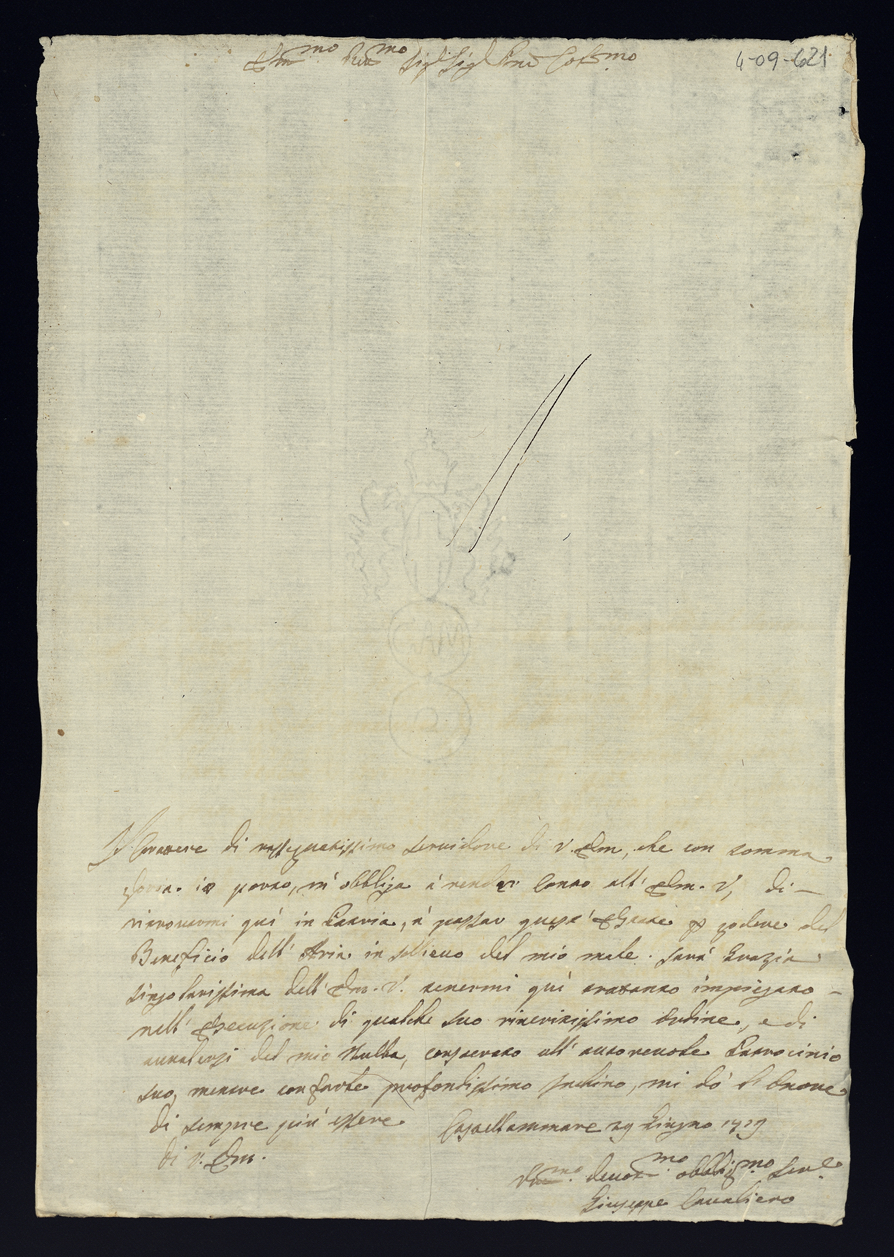 Em.mo Rev.mo Sig.r Sig.r Pron Col.mo
4-09-621
Il Carattere di rassegnatissimo servidore di V. Em, che con somma
gloria io porto, m'obbliga à render conto all' Em. V, di
ritrovarmi quì in Patria, à passar quest' Estate p godere del
Beneficio dell' Aria in sollievo del mio male. Sarà Grazia
singolarissima dell' Em. V. tenermi quì ancora impiegato
nell' Esecuzione di qualche suo riveritissimo ordine, e di
avvalersi del mio Nulla, consecrato all' autorevole Patrocinio
suo, mentre con farle profondissimo inchino, mi dò l'onore
di sempre più essere Castellammare 29 Giugno 1719
di V. Em.
Um.mo devot.mo obblig.mo Serv.e
Giuseppe Cavaliero